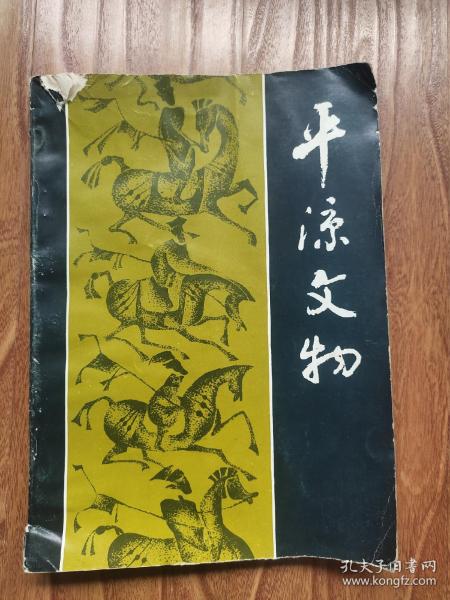 平凉文物
孔夫子旧书网
www.kongfz.com